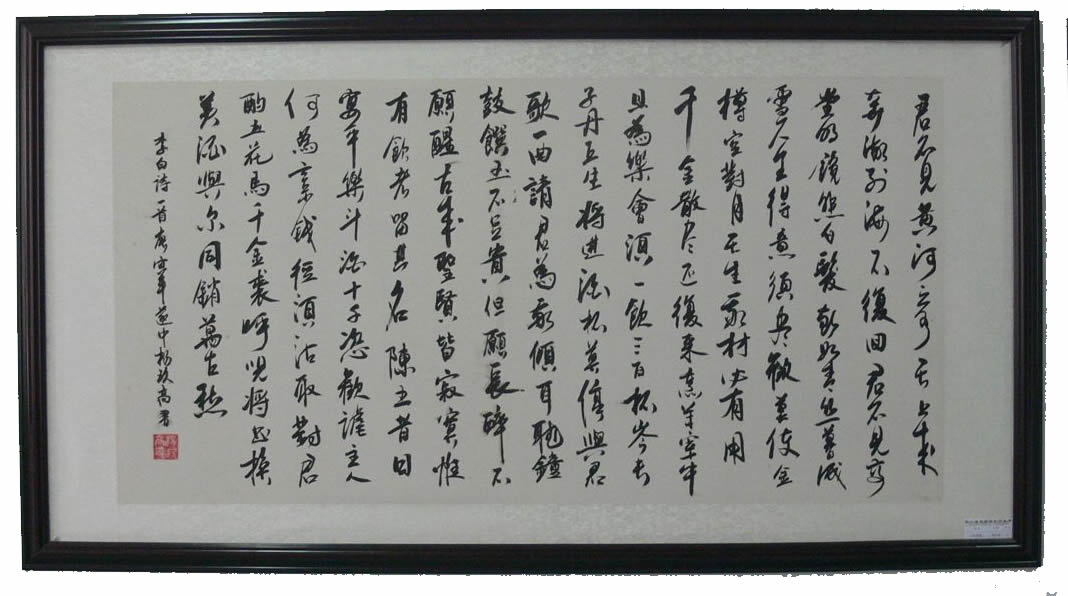 君不見黃河之水天上來
奔流到海不復回君不見高
堂明鏡悲白髮朝如青絲暮成
雪人生得意須盡歡莫使金
樽空對月天生我材必有用
千金散尽還復來烹羊宰牛
且為樂會須一飲三百杯岑夫
子丹丘生將進酒杯莫停與君
歌一曲請君為我傾耳聽鐘
鼓饌玉不足貴但願長醉不
願醒古來聖賢皆寂寞惟
有飲者留其名陳王昔日
宴平樂斗酒十千恣歡謔主人
何為言少錢徑須沽取對君
酌五花馬千金裘呼兒將出換
美酒與尔同銷萬古愁
李白詩一首庚寅年